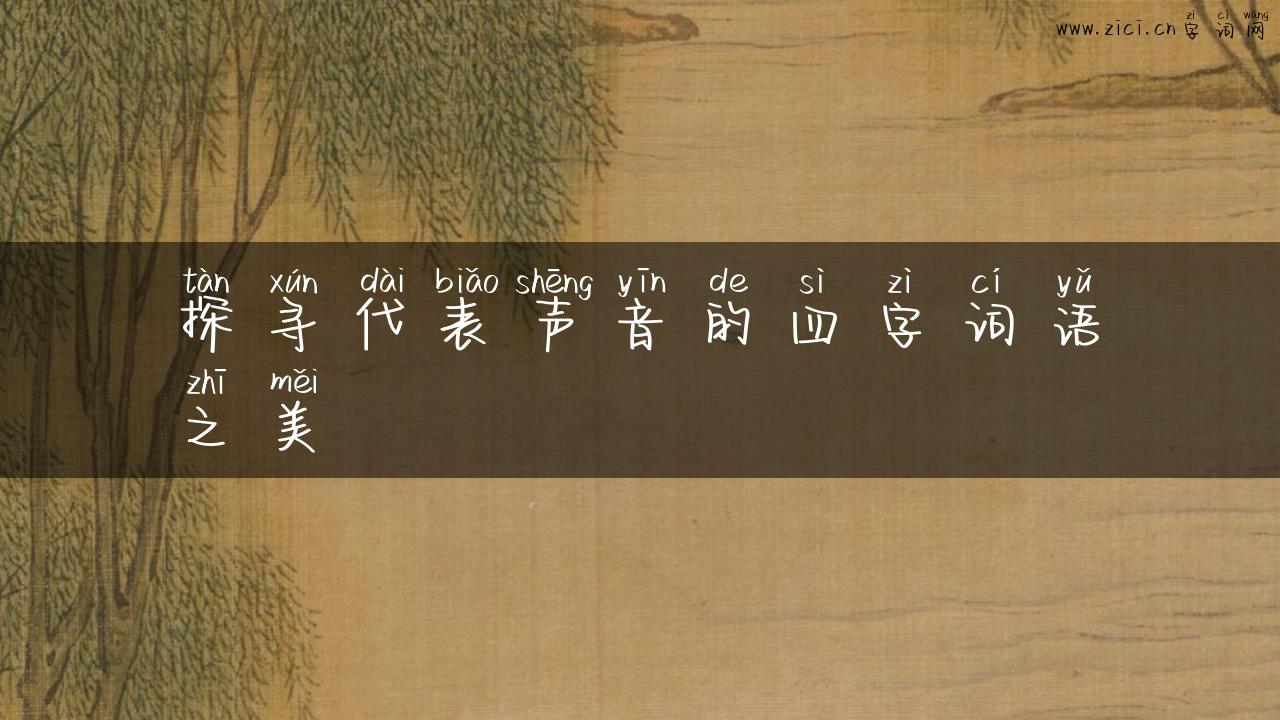 zì cí wǎng
www.zici.cn 字词网
tàn xún dài biǎo shēng yīn de sì zì cí yǔ
探寻代表声音的四字词语
zhī měi
之美